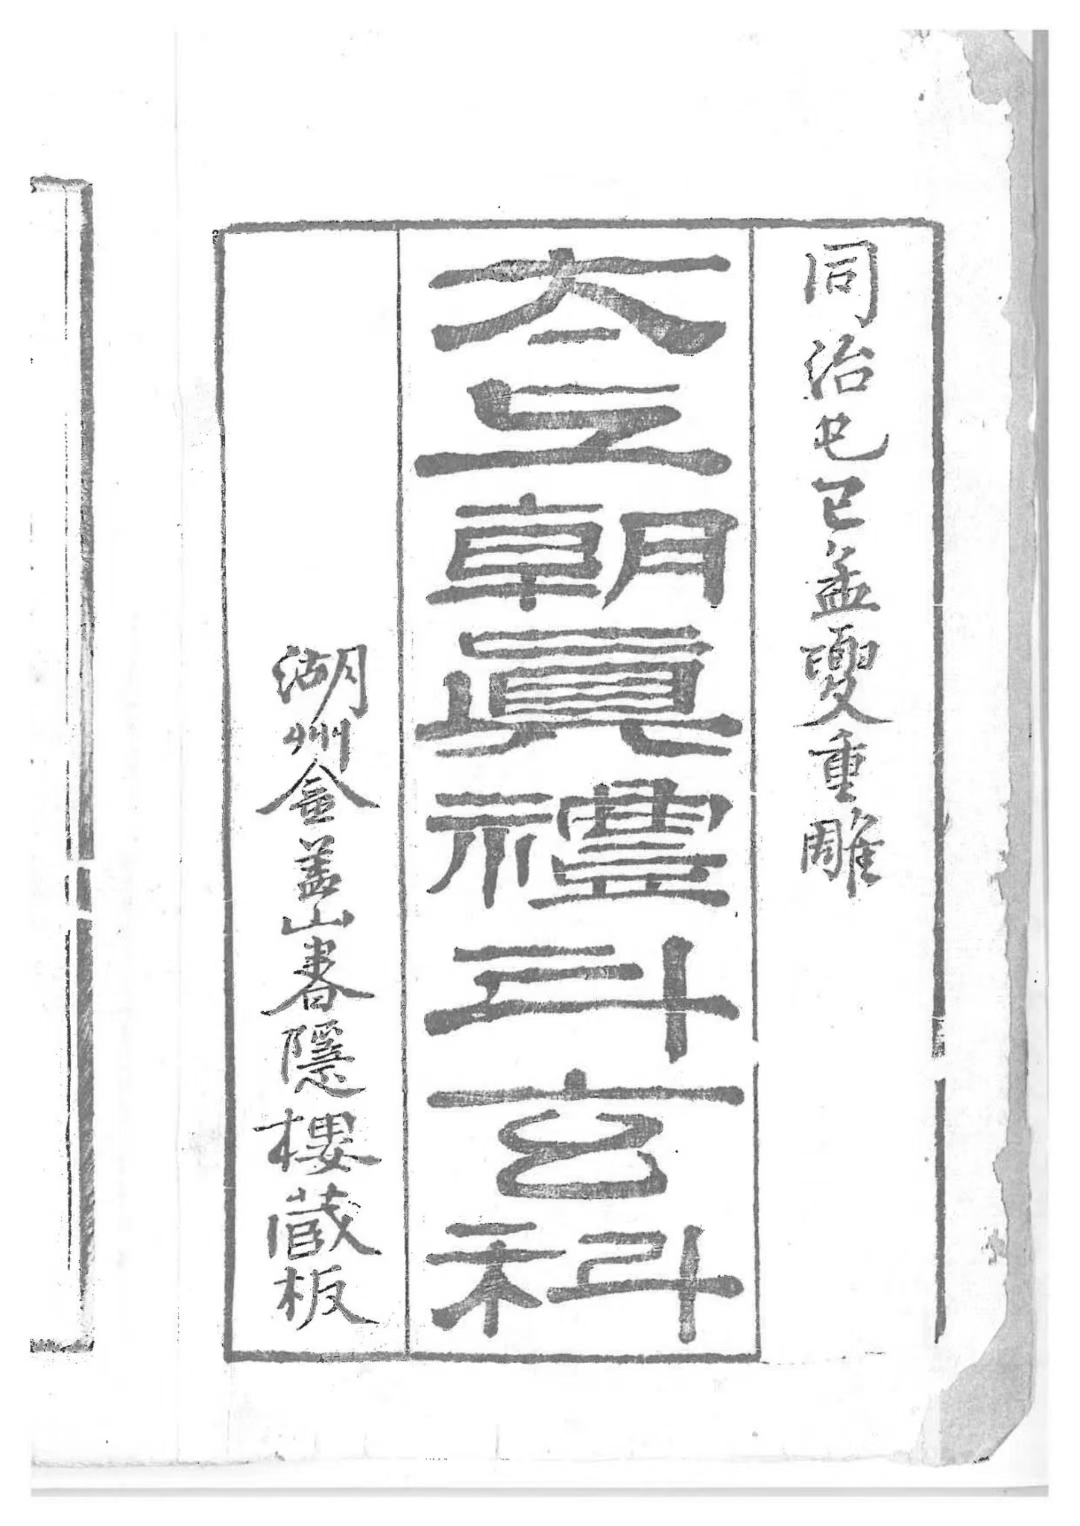 同治己巳孟夏重雕
太上朝眞禮斗玄科
湖州金盖山書隱樓藏板